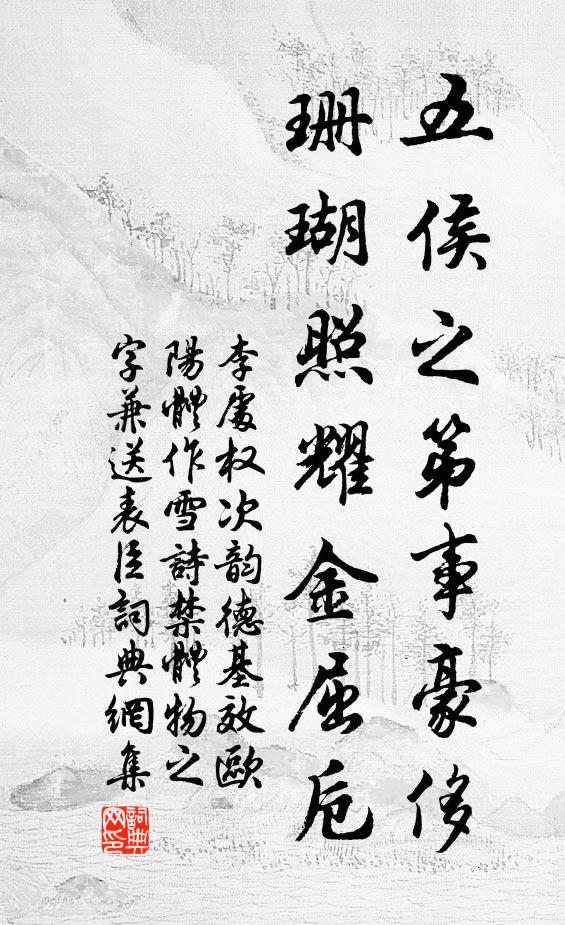 五侯之第事豪侈
珊瑚照耀金屈卮
李處权次韵德基效歐
陽體作雪詩禁體物之
字兼送表臣詞典網集
詞典网印